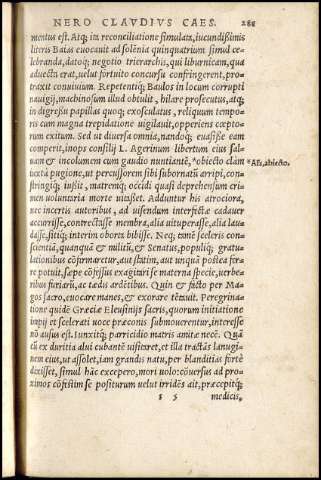 NERO CLAVDIVS CAES. 288
mentus est. Atq; in reconciliatione simulata, iucundißimis
literis Baias euocauit ad solẽnia quinquatrium simul ce-
lebranda, datoq; negotio trierarchis, qui liburnicam, qua
aduecta erat, uelut fortuito concursu confringerent, pro-
traxit conuiuium. Repetentiq; Baulos in locum corrupti
nauigij, machinosum illud obtulit, hilare prosecutus, atq;
in digressu papillas quoq; exosculatus, reliquum tempo-
ris cum magna trepidatione uigilauit, opperiens cœptorum
exitum. Sed ut diuersa omnia, nandoq; euasiße eam
comperit, inops consilij L. Agerinum libertum eius sal-
uam & incolumem cum gaudio nuntiantẽ, *obiecto clam
*Aßi, abiecto.
iuxta pugione, ut percussorem sibi subornatũ arripi, con-
stringiq; iußit, matremq; occidi quasi deprehensum cri-
men uoluntaria morte uitasset. Adduntur his atrociora,
nec incertis autoribus, ad uisendum interfectæ cadauer
accurrisse, contrectasse membra, alia uituperasse, alia lau-
dasse, sitiq; interim oborta bibisse. Neq; tamẽ sceleris con-
scientiã, quanquã & militũ, & Senatus, populiq; gratu-
lationibus cõfirmaretur, aut statim, aut unquã postea fer-
re potuit, sæpe cõfessus exagitari se materna specie, uerbe-
ribus furiarũ, ac tædis ardẽtibus. Quin & facto per Ma-
gos sacro, euocare manes, & exorare tẽtauit. Peregrina-
tione quidẽ Græciæ Eleusinijs sacris, quorum initiatione
impij et scelerati uoce præconis submouerentur, interesse
nõ ausus est. Iunxitq; parricidio matris amitæ necẽ. Quã
cũ ex duritia alui cubantẽ uisitaret, et illa tractãs lanugi-
nem eius, ut assolet, iam grandis natu, per blanditias fortè
dixisset, simul hãc excepero, mori uolo: cõuersus ad pro-
ximos cõfistim se positurum uelut irridẽs ait, præcepitq;
s 5 medicis,